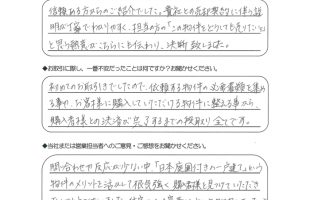 信頼ある方からのご紹介でしたし、貴社との売却契約に伴う説
明が丁寧でわかりやすく、担当の方の「この物件をどうしても売りたい」と
と思う熱意がこちらにも伝わり、決断致しました。
◆お取引に際し、一番不安だったことは何ですか？お聞かせください。
初めてのお取引きでしたので、依頼する物件の必要書類を集め
る事や、お客様に購入していただける物件に整える事から、
購入者様との決済が完了するまでの段取り全てです。
◆当社または営業担当者へのご意見・ご感想をお聞かせください。
問い合わせや反応が少ない中「日本庭園付きの一戸建て」という
物件のメリットを活かして根気強く購入者様を見つけていただき